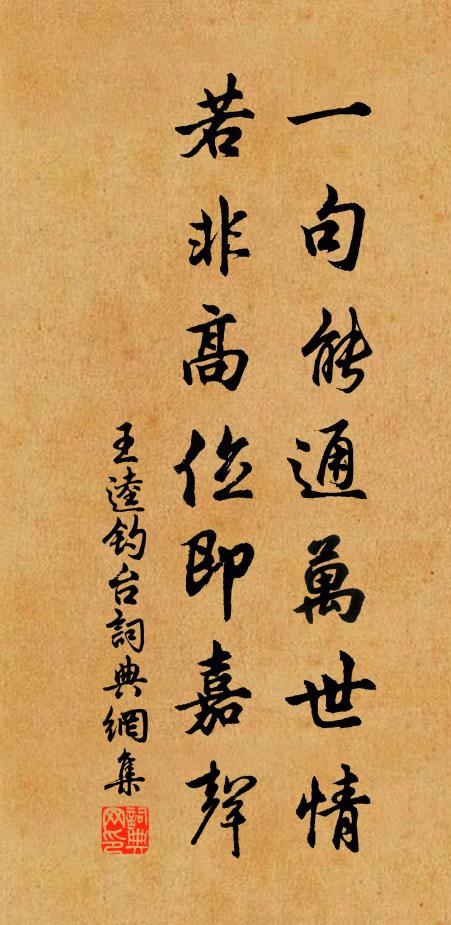 一句能通萬世情
若非高位即嘉聲
王逵釣台詞典網集
詞典网印